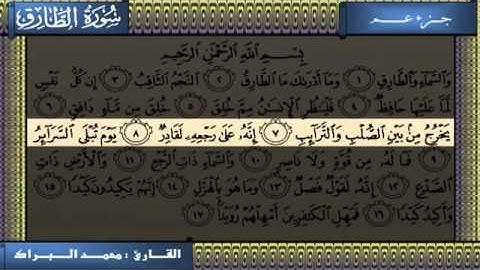 جزء عم
سُورَةُ الطَّارِقِ
بِسْمِ اللَّهِ الرَّحْمَٰنِ الرَّحِيمِ
وَالسَّمَاءِ وَالطَّارِقِ ١ وَمَا أَدْرَىٰكَ مَا الطَّارِقُ ٢ النَّجْمُ الثَّاقِبُ ٣ إِن كُلُّ نَفْسٍ
لَّمَّا عَلَيْهَا حَافِظٌ ٤ فَلْيَنظُرِ الْإِنسَٰنُ مِمَّ خُلِقَ ٥ خُلِقَ مِن مَّاءٍ دَافِقٍ ٦
يَخْرُجُ مِنْ بَيْنِ الصُّلْبِ وَالتَّرَائِبِ ٧ إِنَّهُ عَلَىٰ رَجْعِهِ لَقَادِرٌ ٨ يَوْمَ تُبْلَى السَّرَائِرُ
٩ فَمَا لَهُ مِن قُوَّةٍ وَلَا نَاصِرٍ ١٠ وَالسَّمَاءِ ذَاتِ الرَّجْعِ ١١ وَالْأَرْضِ ذَاتِ
الصَّدْعِ ١٢ إِنَّهُ لَقَوْلٌ فَصْلٌ ١٣ وَمَا هُوَ بِالْهَزْلِ ١٤ إِنَّهُمْ يَكِيدُونَ كَيْدًا ١٥
وَأَكِيدُ كَيْدًا ١٦ فَمَهِّلِ الْكَٰفِرِينَ أَمْهِلْهُمْ رُوَيْدًا ١٧
القارئ : محمد البراك